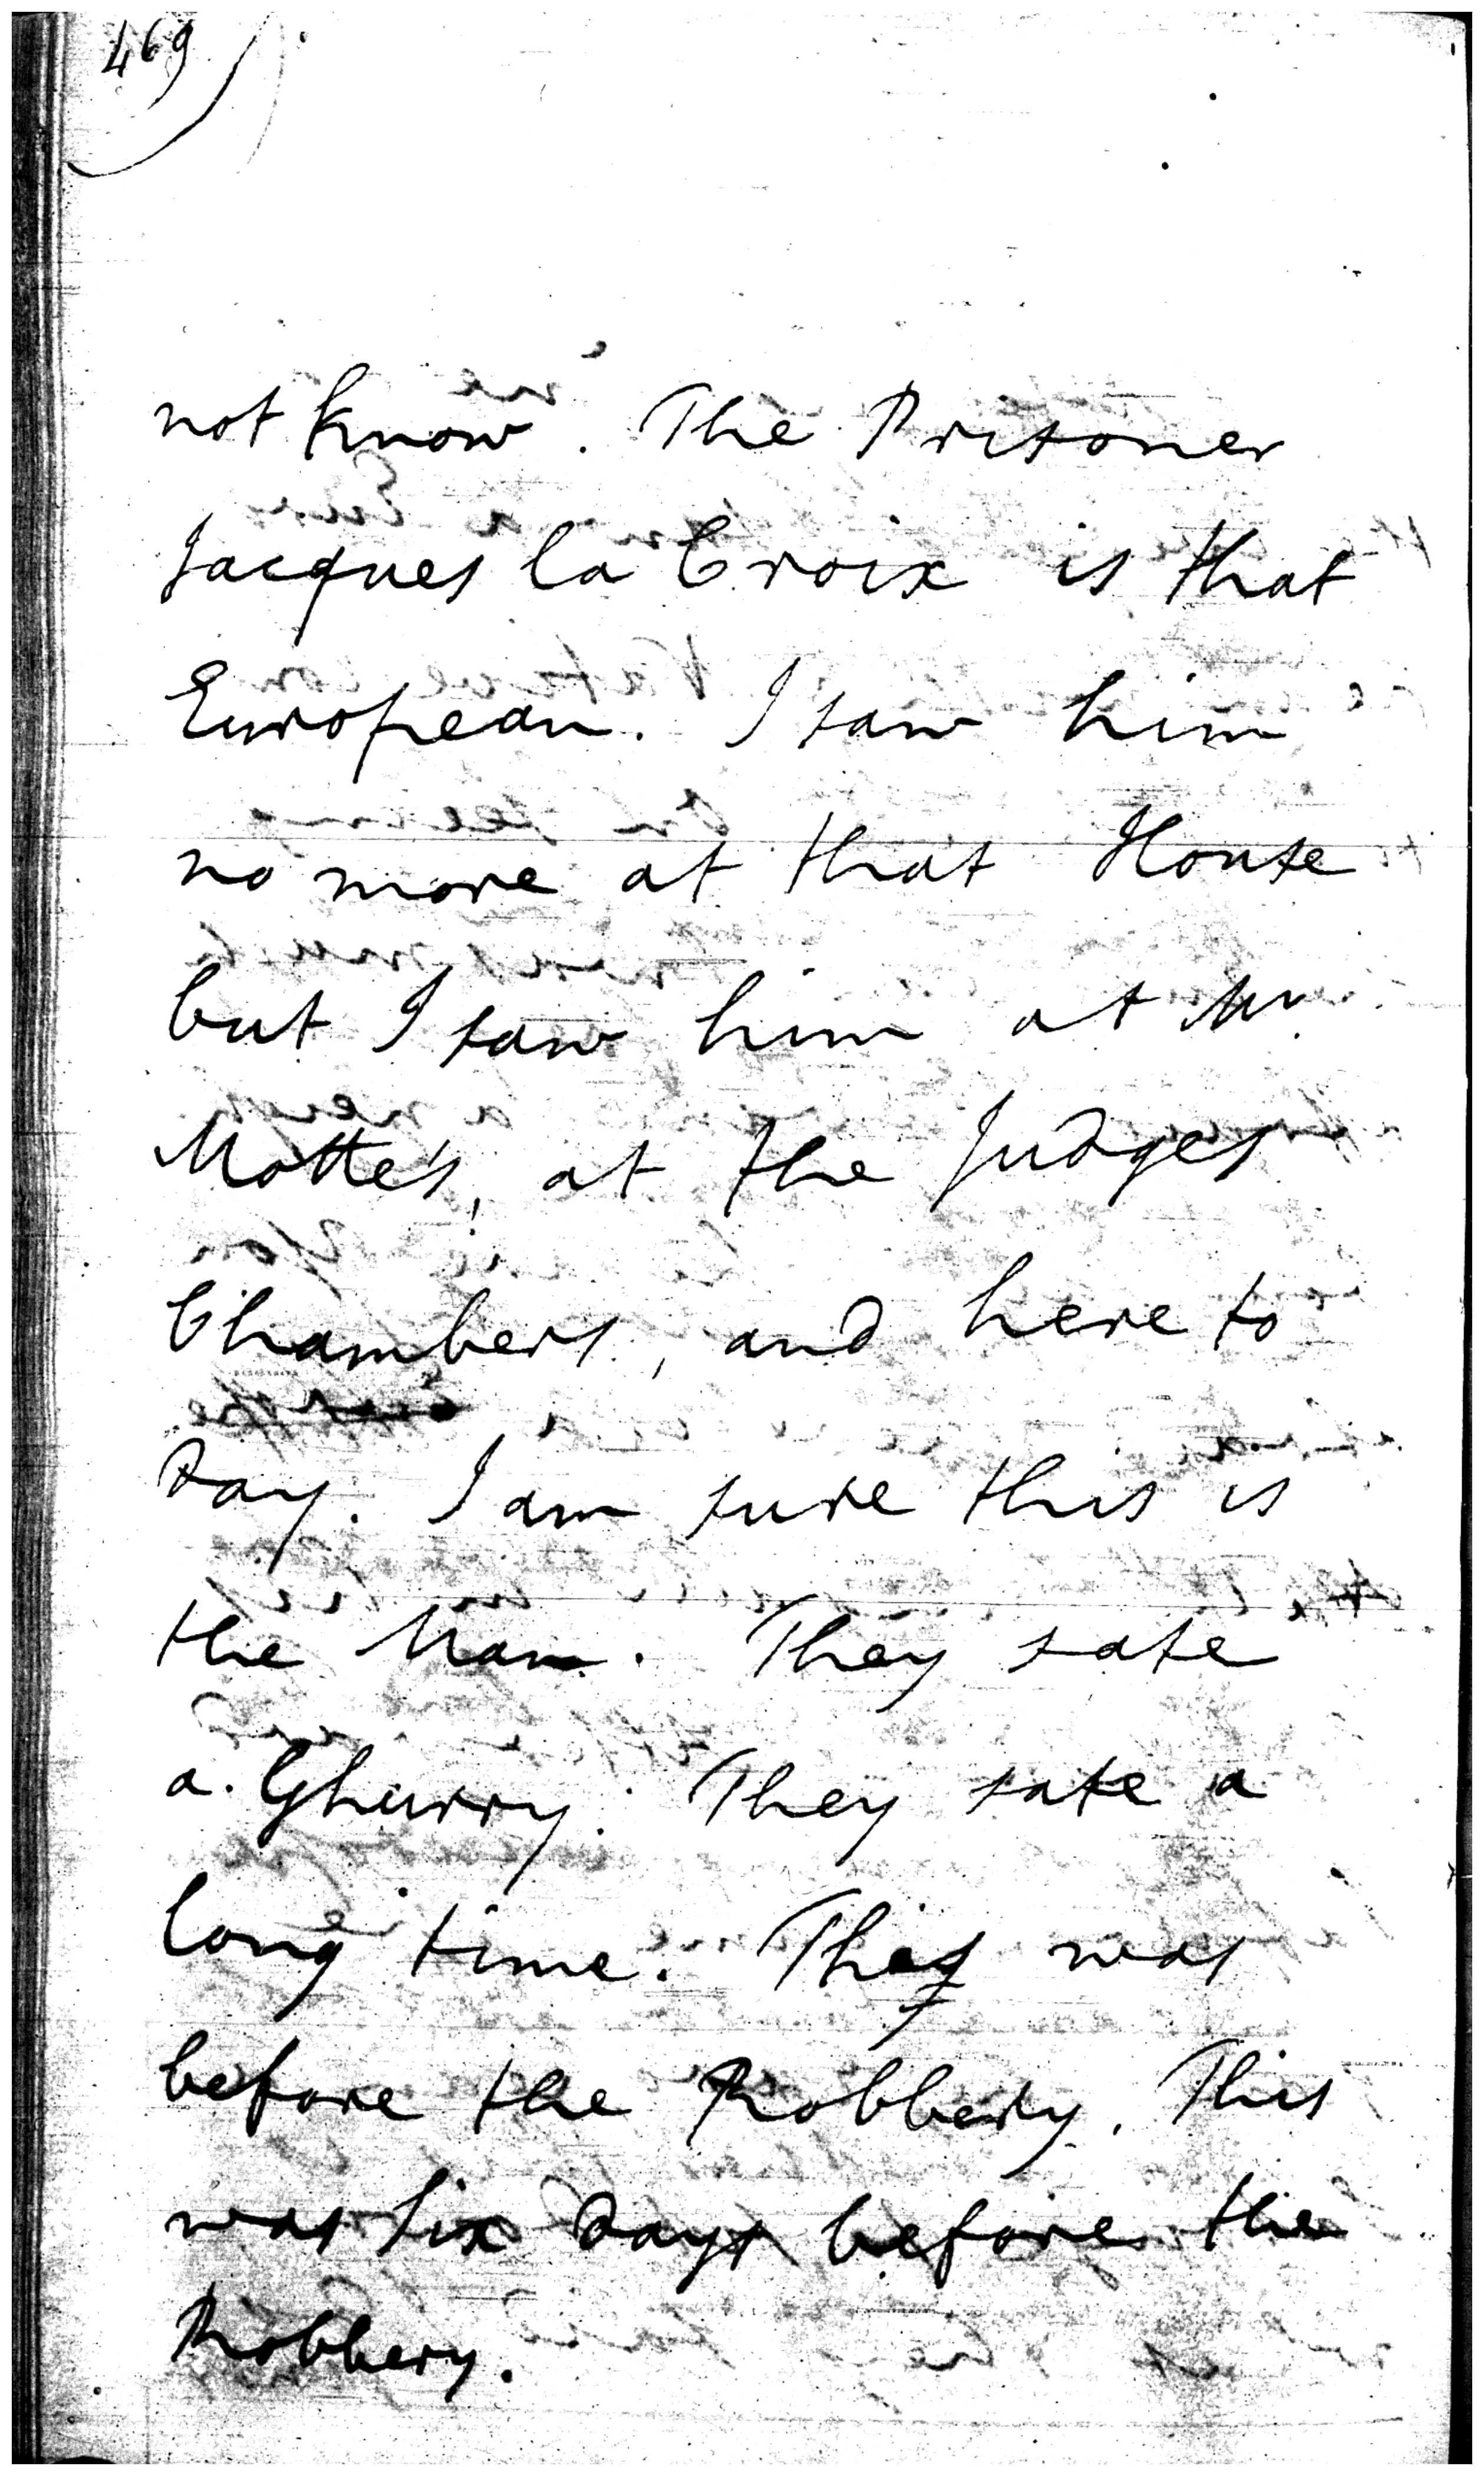 469
not know. The Prisoner
Jacques la Croix is that
European. I saw him
no more at that House
but I saw him at Mr
Motte's, at the Judges
Chambers, and here to
Day. I am sure this is
the Man. They sate
a Ghurry. They sate a
long time. This was
before the Robbery. This
was Six Days before the
Robbery.